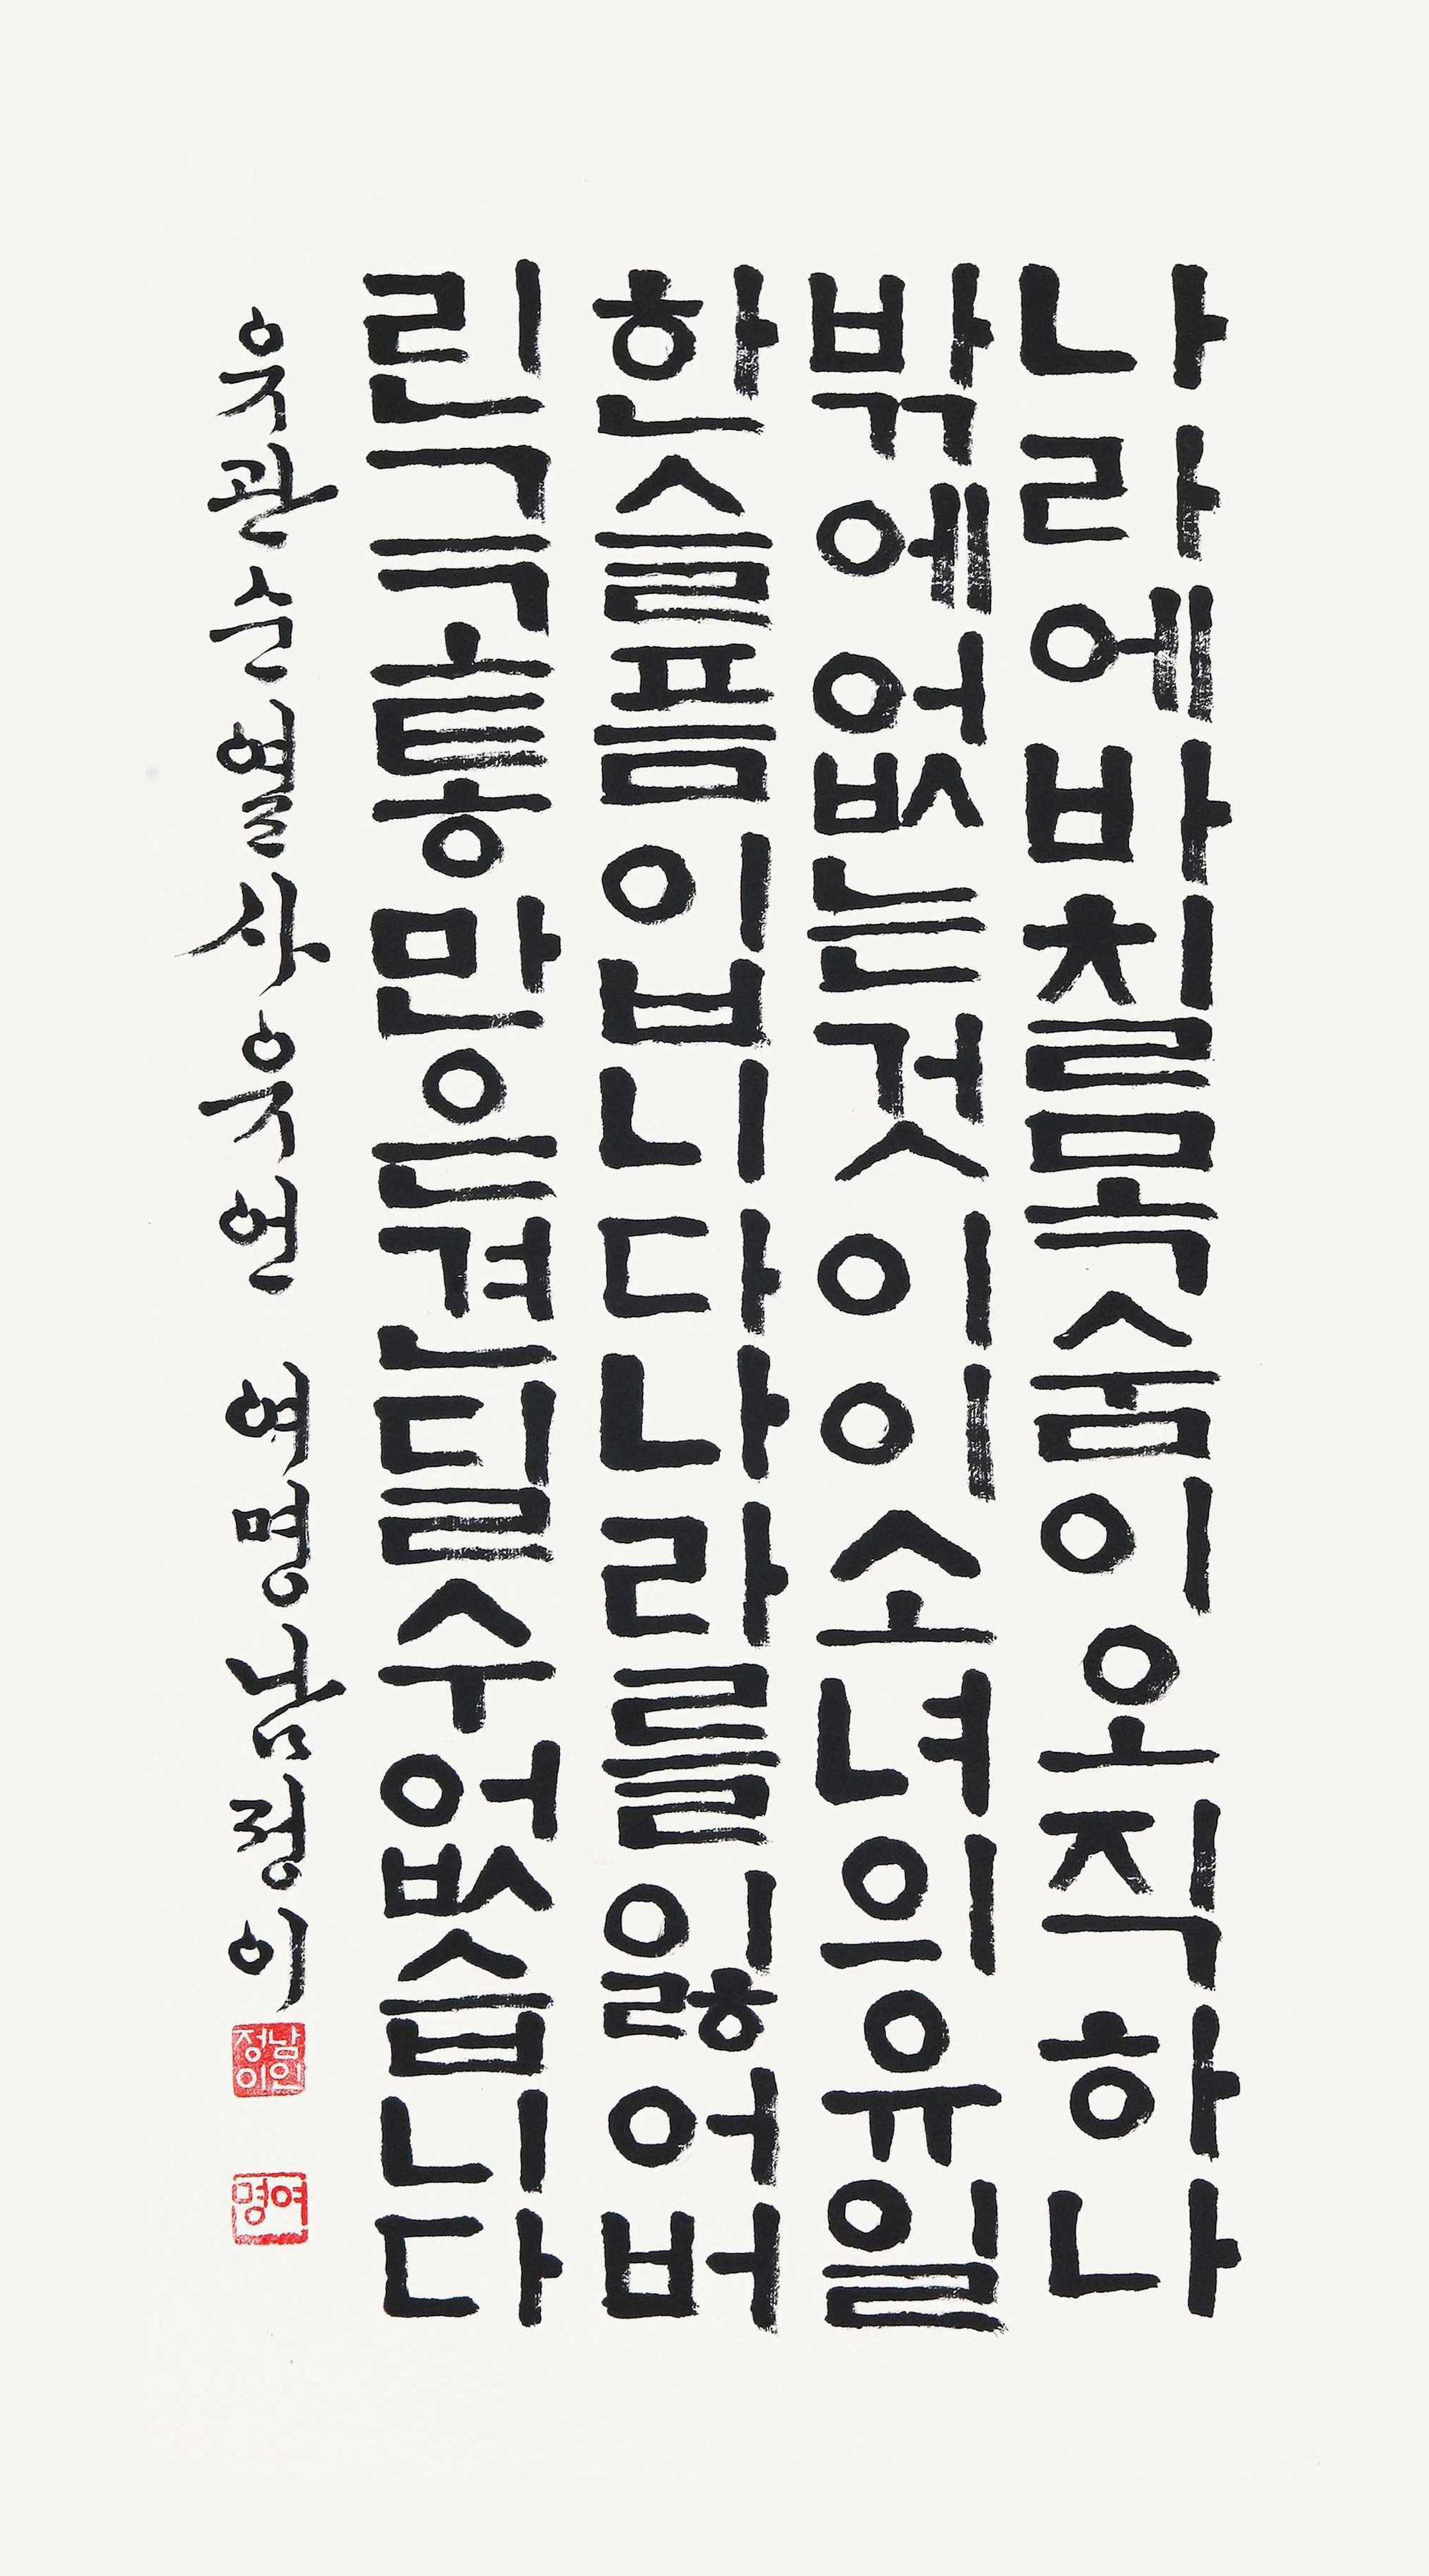 나라에바칠목숨이오직하나
밖에없는것이이소녀의유일
한슬픔입니다나라를잃어버
린그고통만은견딜수없습니다
유관순열사유언 여명남정이
남정이인
여명